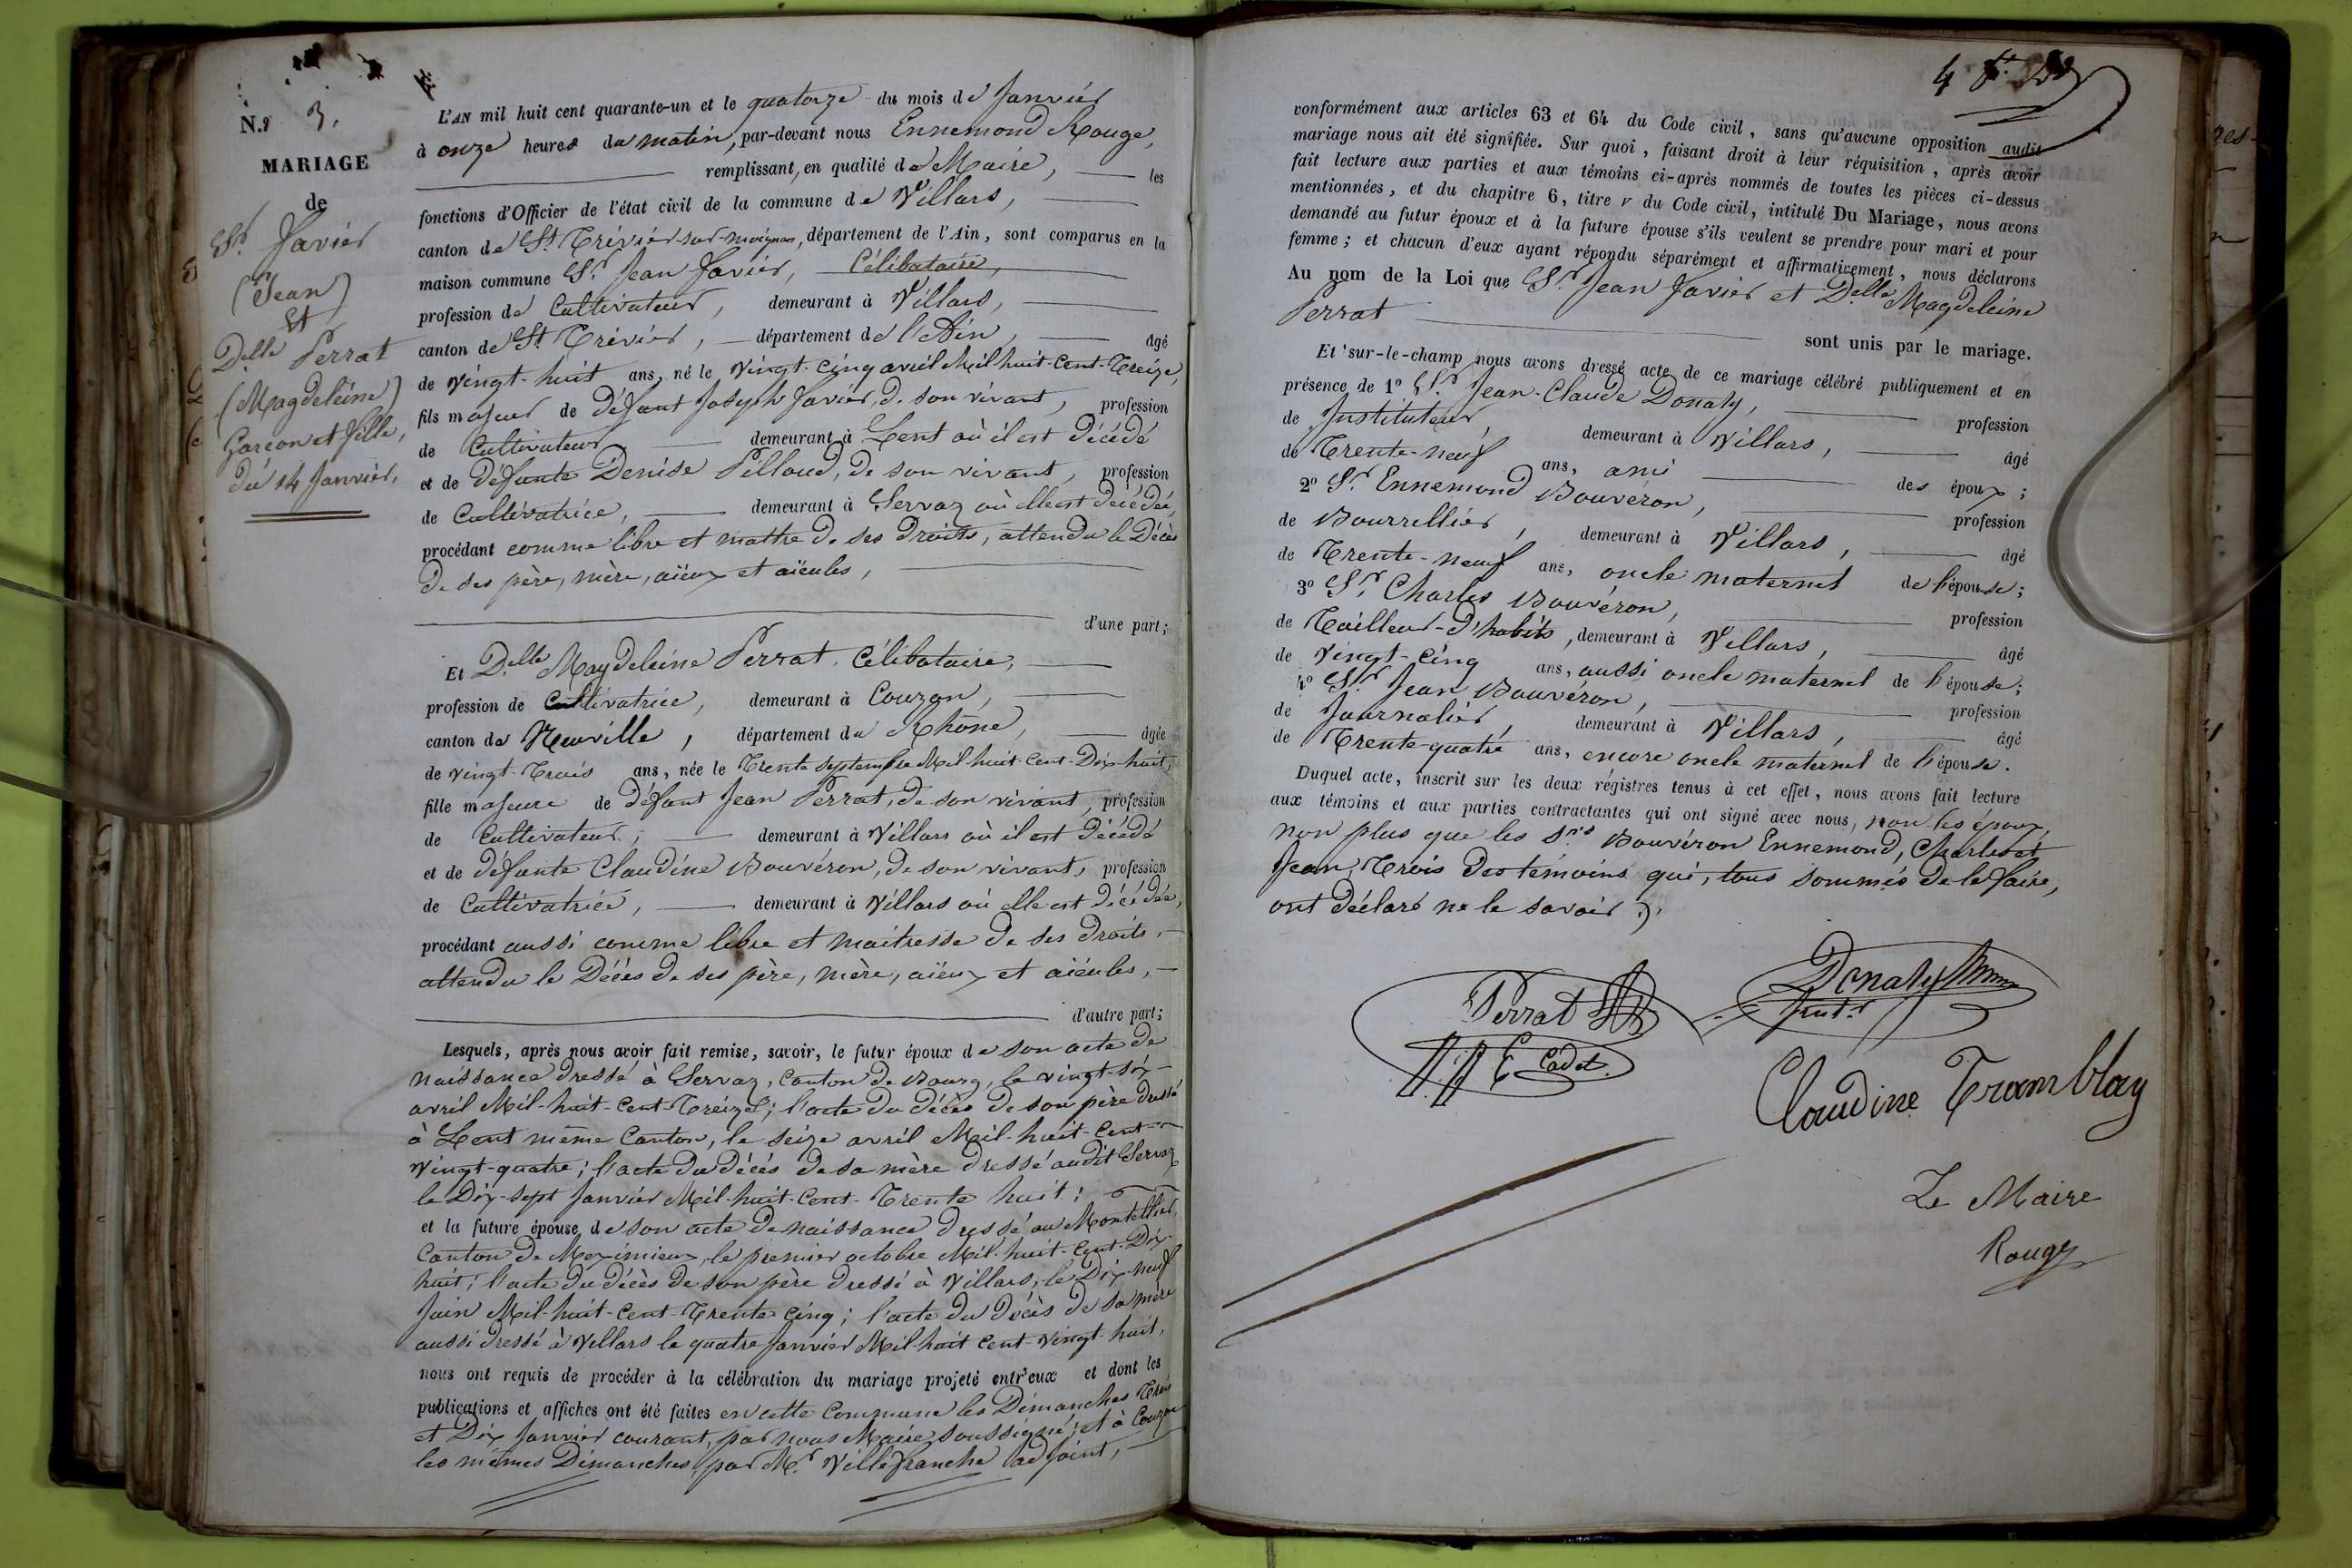 N.º 3.
MARIAGE
de
Sr. Javier
(Jean)
Et
Delle Perrat
(Magdeleine)
Garçon et fille,
du 14 Janvier,
L'AN mil huit cent quarante-un et le quatorze du mois de Janvier
à onze heures du matin, par-devant nous Ennemond Rouge,
remplissant, en qualité de Maire, les
fonctions d'Officier de l'état civil de la commune de Villars,
canton de St. Trévier-sur-moignans, département de l'Ain, sont comparus en la
maison commune Sr. Jean Javier, Célibataire,
profession de Cultivateur, demeurant à Villars,
canton de St. Trévier, département de l'Ain, âgé
de vingt-huit ans, né le vingt-cinq avril Mil huit-cent-Treize,
fils majeur de défunt Joseph Javier, de son vivant, profession
de Cultivateur demeurant à Lent où il est décédé
et de défunte Denise Pilloud, de son vivant, profession
de Cultivatrice, demeurant à Servaz où elle est décédée,
procédant comme libre et maître de ses droits, attendu le Décès
de ses père, mère, aïeux et aïeules,
d'une part;
Et Delle Magdeleine Perrat, Célibataire,
profession de Cultivatrice, demeurant à Couzon,
canton de Neuville, département du Rhône, âgée
de vingt-Trois ans, née le Trente Septembre Mil huit-Cent-Dix-huit,
fille majeure de défunt Jean Perrat, de son vivant, profession
de Cultivateur, demeurant à Villars où il est décédé
et de défunte Claudine Bouvéron, de son vivant, profession
de Cultivatrice, demeurant à Villars où elle est décédée,
procédant aussi comme libre et maitresse de ses droits,
attendu le Décès de ses père, mère, aïeux et aïeules,
d'autre part;
Lesquels, après nous avoir fait remise, savoir, le futur époux de son acte de
naissance dressé à Servaz, Canton de Bourg, le vingt-six
avril Mil-huit-Cent-Treize; l'acte du décès de son père dressé
à Lent même Canton, le seize avril Mil-huit-Cent-
vingt-quatre; l'acte du décès de sa mère dressé audit Servaz
le Dix-sept Janvier Mil-huit-Cent-Trente huit;
et la future épouse, de son acte de naissance dressé au Montellier,
Canton de Meximieux, le premier octobre Mil-huit-Cent-Dix-
huit; l'acte du décès de son père dressé à Villars, le Dix-neuf
Juin Mil-huit-Cent-Trente cinq; l'acte du Décès de sa mère
aussi dressé à Villars le quatre Janvier Mil-huit Cent-vingt-huit,
nous ont requis de procéder à la célébration du mariage projeté entr'eux et dont les
publications et affiches ont été faites en cette Commune les Dimanches Trois
et Dix Janvier courant, par nous Maire soussigné; et à Couzon
les mêmes Dimanches, par Mr. Villefranche adjoint,
4
conformément aux articles 63 et 64 du Code civil, sans qu'aucune opposition audit
mariage nous ait été signifiée. Sur quoi, faisant droit à leur réquisition, après avoir
fait lecture aux parties et aux témoins ci-après nommés de toutes les pièces ci-dessus
mentionnées, et du chapitre 6, titre v du Code civil, intitulé Du Mariage, nous avons
demandé au futur époux et à la future épouse s'ils veulent se prendre pour mari et pour
femme; et chacun d'eux ayant répondu séparément et affirmativement, nous déclarons
Au nom de la Loi que Sr. Jean Javier et Delle Magdeleine
Perrat sont unis par le mariage.
Et sur-le-champ nous avons dressé acte de ce mariage célébré publiquement et en
présence de 1º Sr. Jean-Claude Donaty, profession
de Instituteur, demeurant à Villars, âgé
de Trente-neuf ans, ami des époux;
2º Sr. Ennemond Bouvéron, profession
de Bourrellier, demeurant à Villars, âgé
de Trente-neuf ans, oncle maternel de l'épouse;
3º Sr. Charles Bouvéron, profession
de Tailleur-d'habits, demeurant à Villars, âgé
de vingt-cinq ans, aussi oncle maternel de l'épouse;
4º Sr. Jean Bouvéron, profession
de Journalier, demeurant à Villars, âgé
de Trente-quatre ans, encore oncle maternel de l'épouse.
Duquel acte, inscrit sur les deux régistres tenus à cet effet, nous avons fait lecture
aux témoins et aux parties contractantes qui ont signé avec nous, non les époux,
non plus que les Srs Bouvéron Ennemond, Charles et
Jean, Trois des témoins qui, tous sommés de le faire,
ont déclaré ne le savoir.
Perrat
Cadet
Donaty
Claudine Tramblay
Le Maire
Rouge